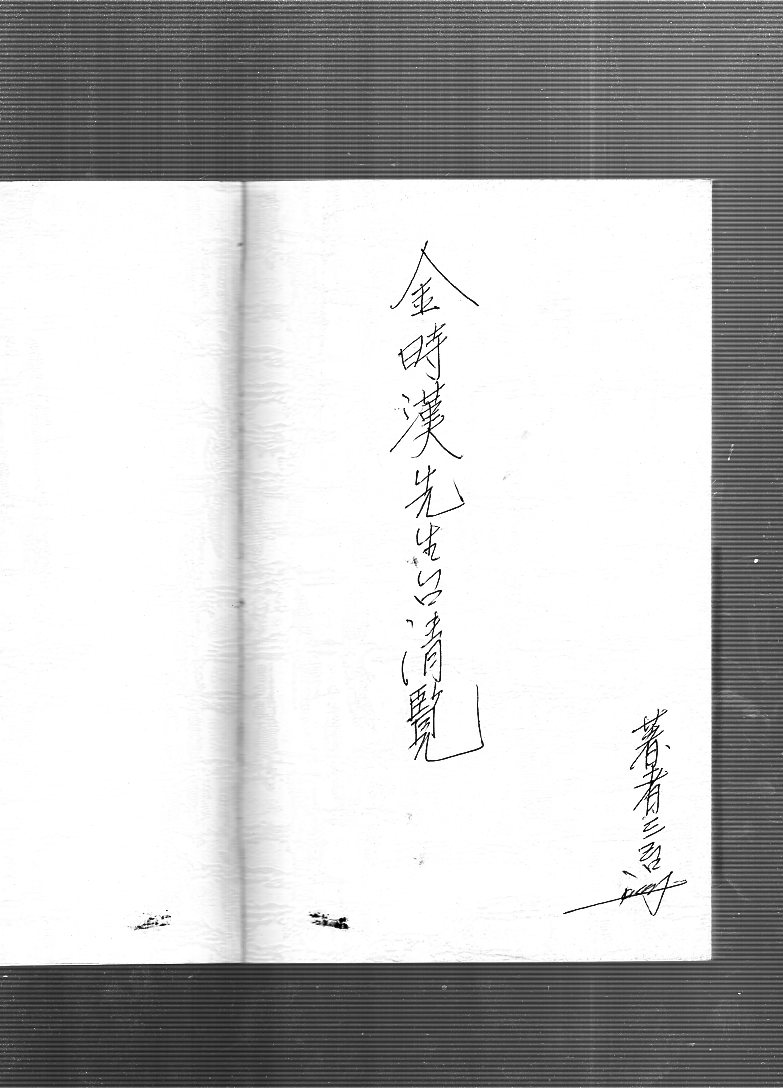 金時漢先生台清覽
著者三